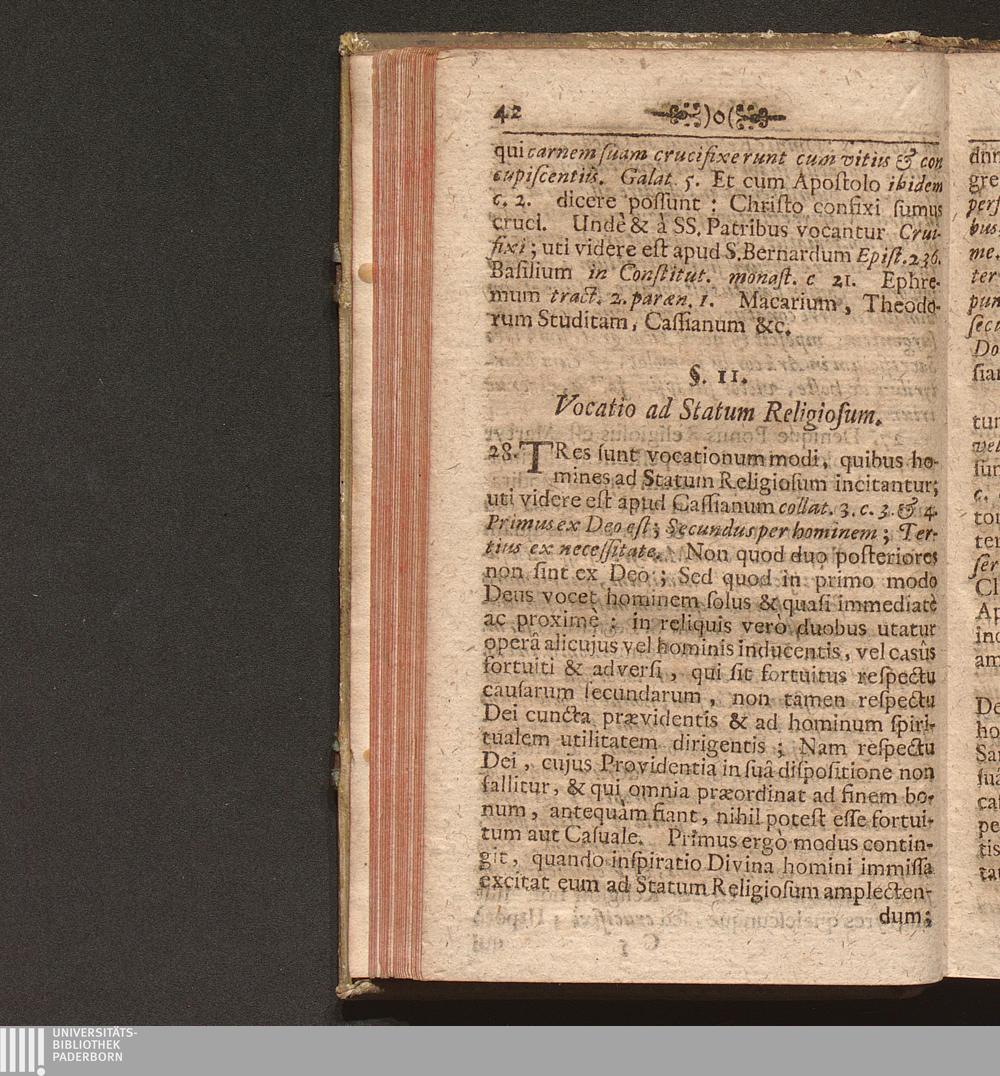 42 )o(
qui carnem ſuam crucifixerunt cum vitiis & con
cupiſcentiis. Galat. 5. Et cum Apoſtolo ibidem
c. 2. dicere poſſunt : Chriſto confixi ſumus
cruci. Undè & à SS. Patribus vocantur Crui-
fixi ; uti videre eſt apud S. Bernardum Epiſt. 236.
Baſilium in Conſtitut. monaſt. c 21. Ephre-
mum tract. 2. paræn. 1. Macarium, Theodo-
rum Studitam, Caſſianum &c.
§. II.
Vocatio ad Statum Religioſum.
28. TRes ſunt vocationum modi, quibus ho-
mines ad Statum Religioſum incitantur;
uti videre eſt apud Caſſianum collat. 3. c. 3. & 4.
Primus ex Deo eſt ; Secundus per hominem ; Ter-
tius ex neceſſitate. Non quod duo poſteriores
non ſint ex Deo ; Sed quod in primo modo
Deus vocet hominem ſolus & quaſi immediatè
ac proximè : in reliquis verò duobus utatur
operâ alicujus vel hominis inducentis, vel casûs
fortuiti & adverſi, qui ſit fortuitus reſpectu
cauſarum ſecundarum, non tamen reſpectu
Dei cuncta prævidentis & ad hominum ſpiri-
tualem utilitatem dirigentis ; Nam reſpectu
Dei, cujus Providentia in ſuâ diſpoſitione non
fallitur, & qui omnia præordinat ad finem bo-
num, antequàm fiant, nihil poteſt eſſe fortui-
tum aut Caſuale. Primus ergò modus contin-
git, quando inſpiratio Divina homini immiſſa
excitat eum ad Statum Religioſum amplecten-
dum;
UNIVERSITÄTS-
BIBLIOTHEK
PADERBORN